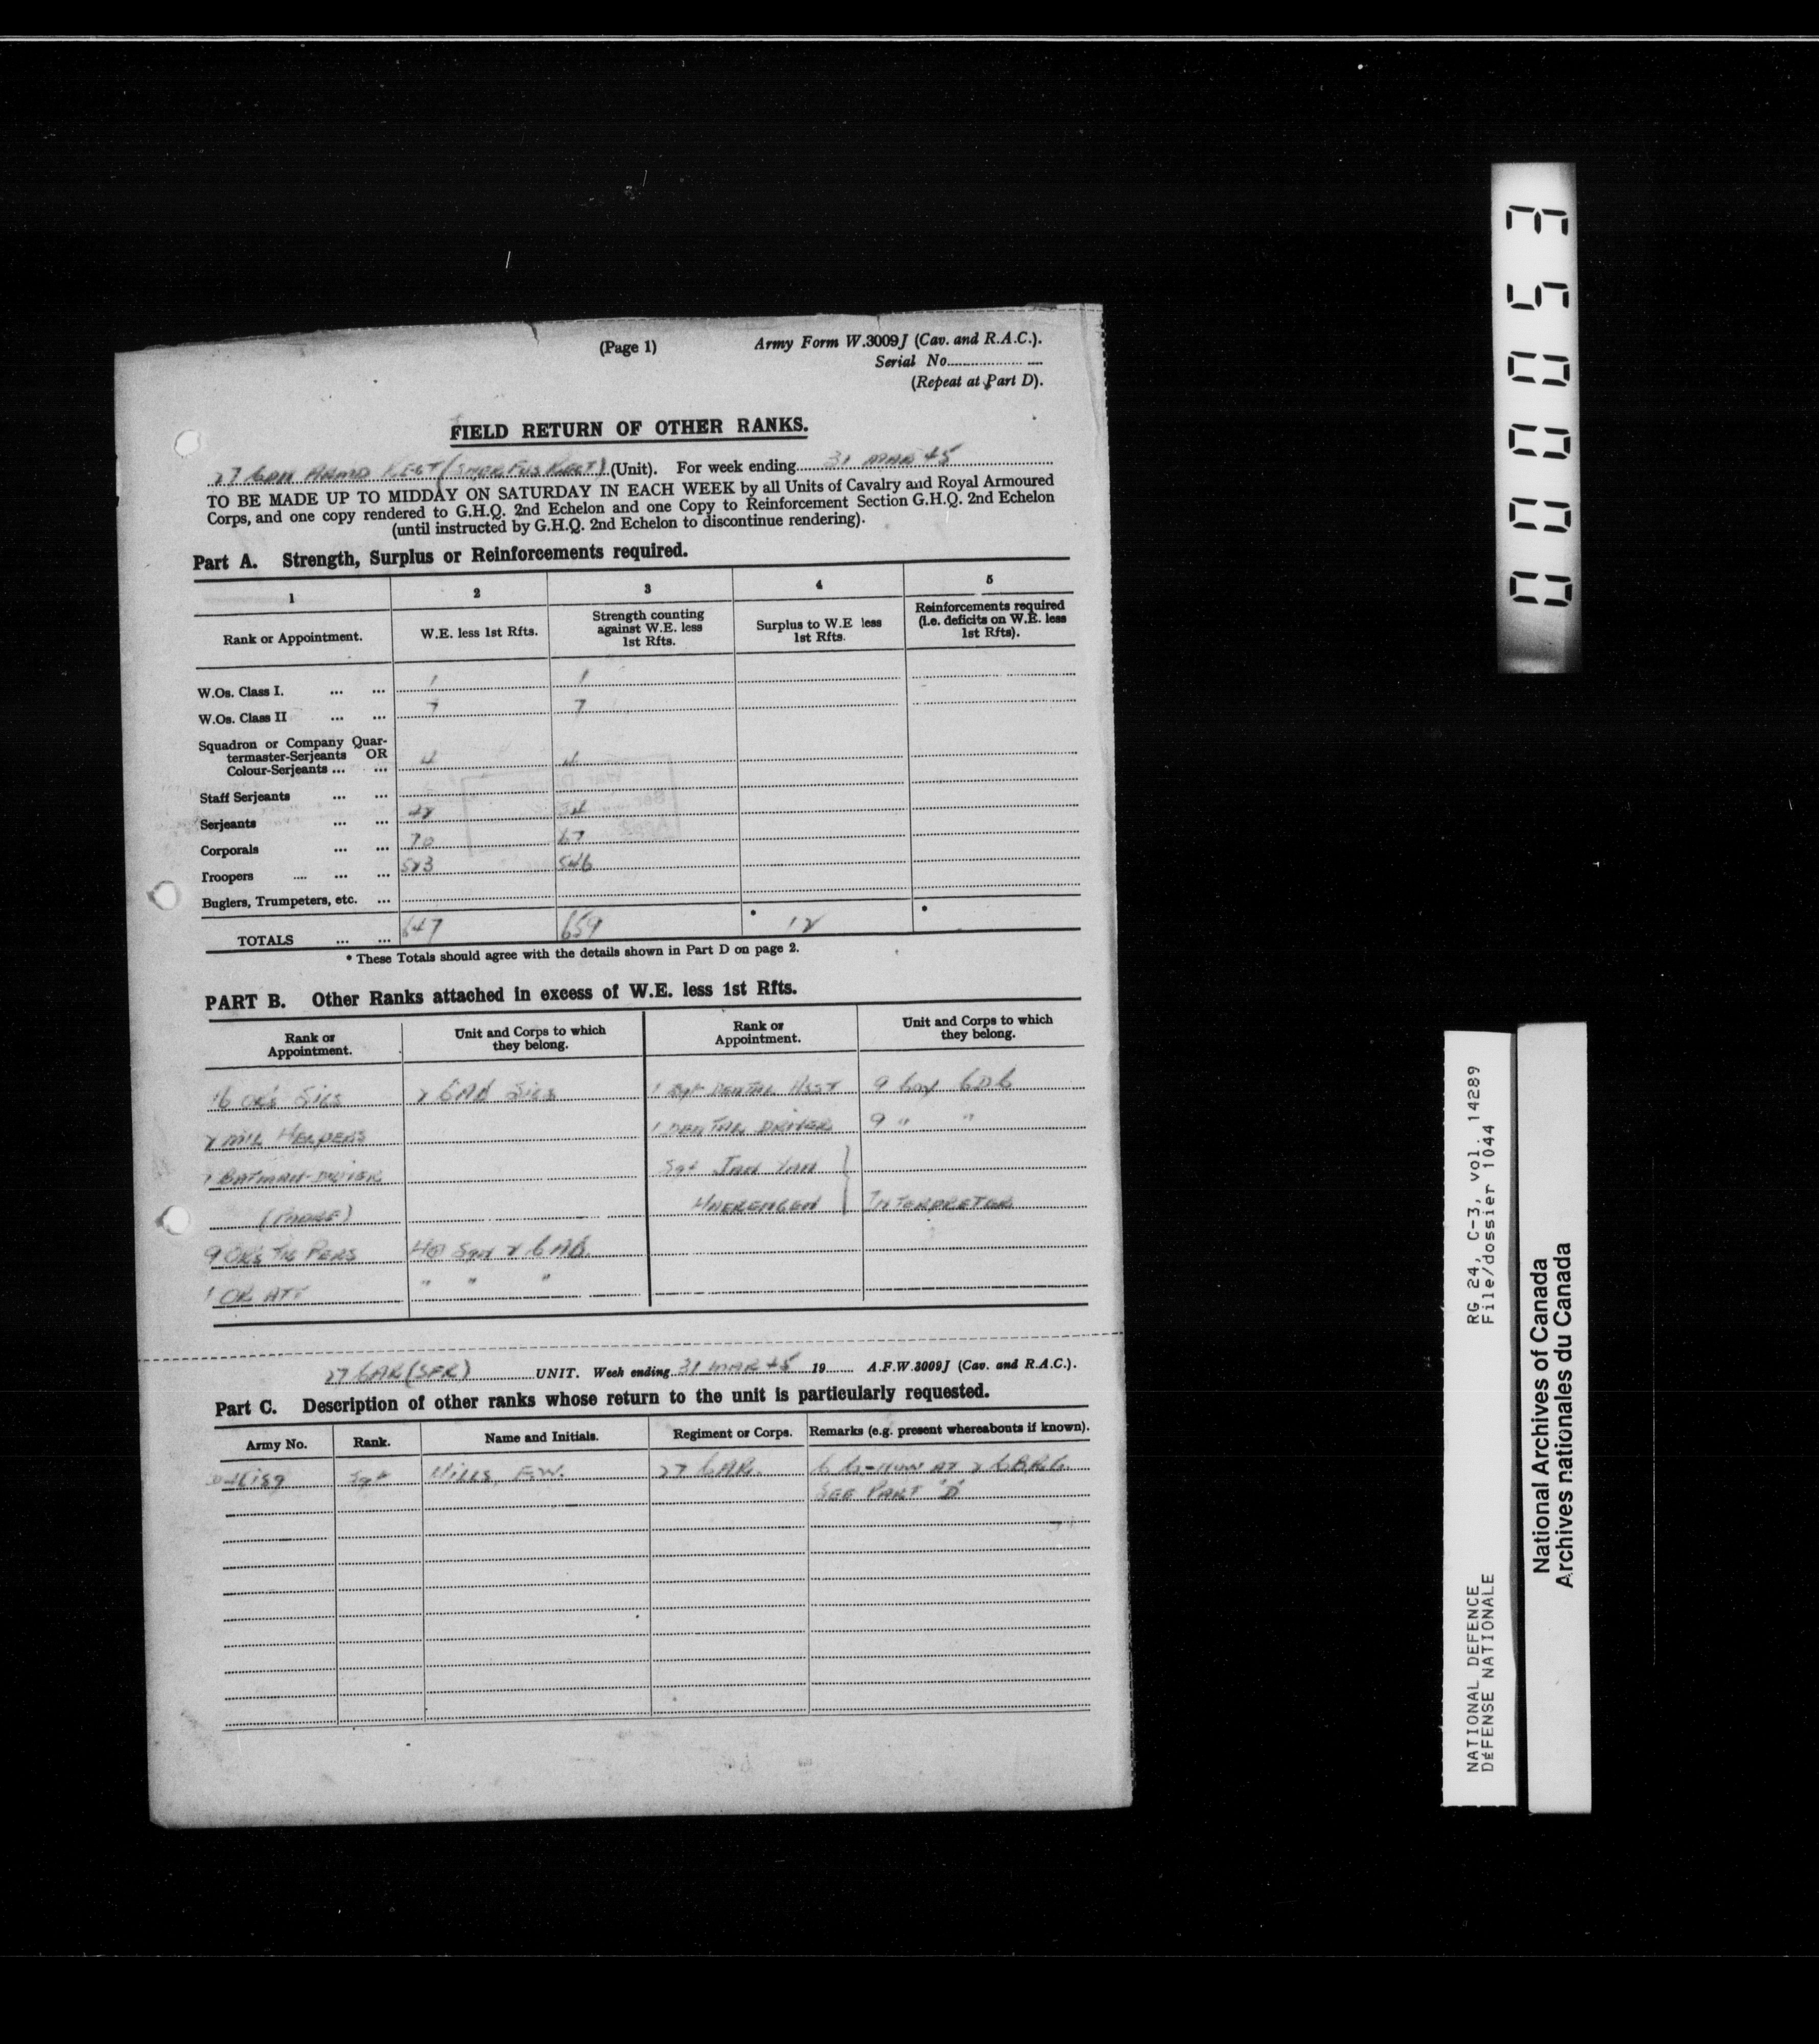 (Page 1)
Army Form W.3009J (Cav. and R.A.C.).
Serial No..................
(Repeat at Part D).
FIELD RETURN OF OTHER RANKS.
27 CAN ARMD REGT (SHER FUS REGT) (Unit). For week ending 31 MAR 45
TO BE MADE UP TO MIDDAY ON SATURDAY IN EACH WEEK by all Units of Cavalry and Royal Armoured
Corps, and one copy rendered to G.H.Q. 2nd Echelon and one Copy to Reinforcement Section G.H.Q. 2nd Echelon
(until instructed by G.H.Q. 2nd Echelon to discontinue rendering).
Part A. Strength, Surplus or Reinforcements required.
1 2 3 4 5
Rank or Appointment. W.E. less 1st Rfts. Strength counting against W.E. less 1st Rfts. Surplus to W.E less 1st Rfts. Reinforcements required (i.e. deficits on W.E. less 1st Rfts).
W.Os. Class I. ... ... 1 1
W.Os. Class II ... ... 7 7
Squadron or Company Quar-
termaster-Serjeants OR
Colour-Serjeants ... ... 4 4
Staff Serjeants ... ...
Serjeants ... ...
Corporals ... ... 70 67
Troopers .... ... ... 523 546
Buglers, Trumpeters, etc. ...
TOTALS ... ... 647 659 * 12 *
* These Totals should agree with the details shown in Part D on page 2.
PART B. Other Ranks attached in excess of W.E. less 1st Rfts.
Rank or Appointment. Unit and Corps to which they belong. Rank or Appointment. Unit and Corps to which they belong.
16 ORs SIGS 2 CAB SIGS 1 Sgt DENTAL ASST 9 Coy CDC
2 MIL HELPERS 1 DENTAL DRIVER 9 " "
1 BATMAN-DRIVER Sgt JAN VAN
(PADRE) INTERPRETER
9 ORs PERS HQ Sqn 2 CAB
1 OR ATT " " "
27 CAR (SFR) UNIT. Week ending 31 MAR 45 19...... A.F.W.3009J (Cav. and R.A.C.).
Part C. Description of other ranks whose return to the unit is particularly requested.
Army No. Rank. Name and Initials. Regiment or Corps. Remarks (e.g. present whereabouts if known).
Sgt F.W. 27 CAR. NOW AT 2 CBRG.
SEE PART 'D'
000053
RG 24, C-3, vol. 14289
File/dossier 1044
NATIONAL DEFENCE
DÉFENSE NATIONALE
National Archives of Canada
Archives nationales du Canada